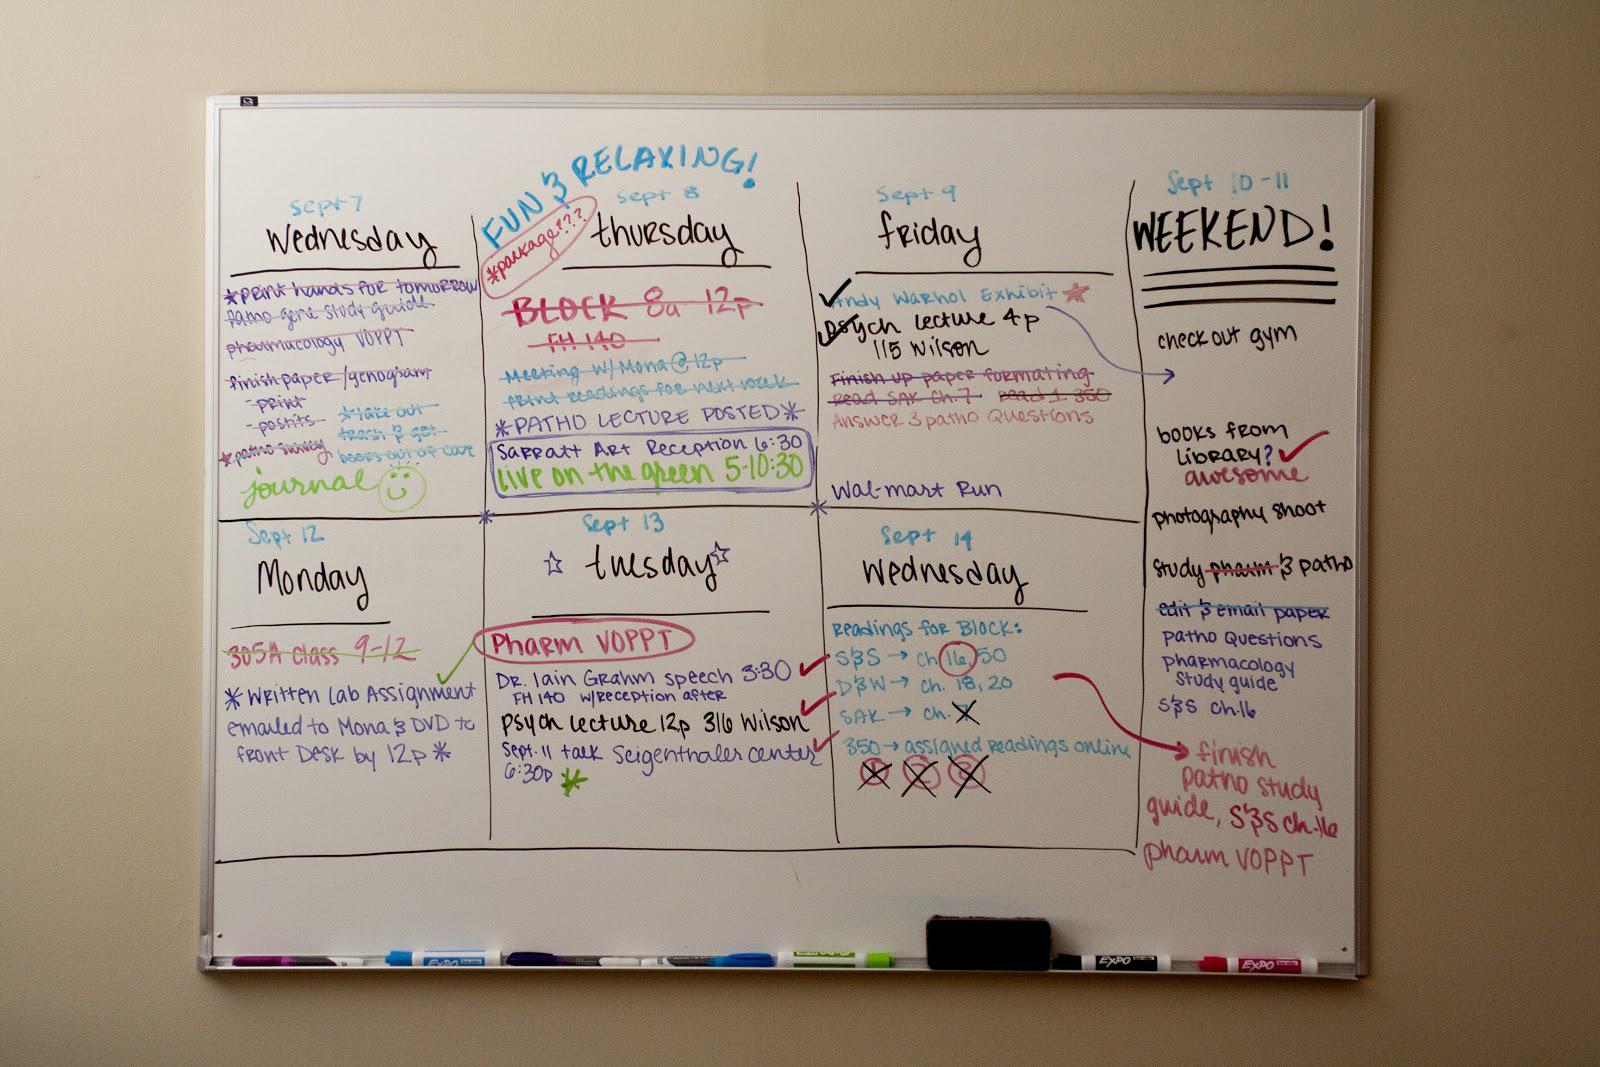 FUN & RELAXING!
Sept 7
Wednesday
*print hands for tomorrow
patho gene study guide
pharmacology VOPPT
finish paper/genogram
-print
-postits
*patho survey
*take out
trash & get
books out of car
journal
Sept 8
*package???
thursday
BLOCK 8a-12p
FH 140
Meeting w/ Mona @ 12p
print readings for next week
*PATHO LECTURE POSTED*
Sarratt Art Reception 6:30
Live on the green 5-10:30
Sept 9
friday
Andy Warhol Exhibit
psych lecture 4p
115 Wilson
Finish up paper formating
Read SAK Ch. 7 Read 1 350
Answer 3 patho Questions
Wal-mart Run
Sept 10-11
WEEKEND!
check out gym
books from
library?
awesome
photography shoot
study pharm & patho
edit & email paper
patho Questions
pharmacology
study guide
S&S ch.16
finish
patho study
guide, S&S ch.16
pharm VOPPT
Sept 12
Monday
305A class 9-12
*Written Lab Assignment
emailed to Mona & DVD to
front Desk by 12p*
Sept 13
tuesday
Pharm VOPPT
Dr. Iain Grahm speech 3:30
FH 140 w/reception after
psych lecture 12p 316 Wilson
Sept. 11 talk Seigenthaler center
6:30p
Sept 14
Wednesday
Readings for Block:
S&S → ch 16, 50
D&W → ch. 18, 20
SAK → ch. 7
350 → assigned readings online
1 2 3
EXPO
EXPO
EXPO